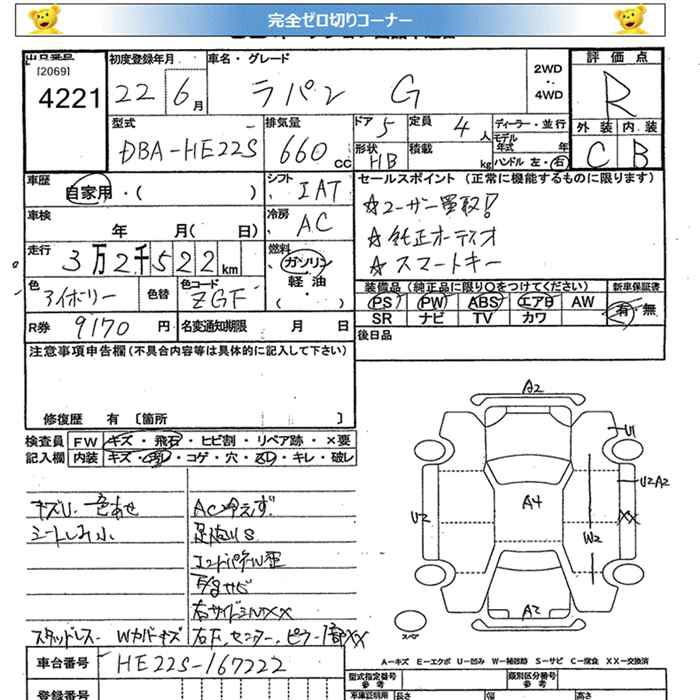 完全ゼロ切りコーナー
出品番号 初度登録年月 車名・グレード 2WD 評価点
[2069]
4221 22 6月 ラパン G 4WD R
型式 排気量 ドア 5 定員 4人 ディーラー・並行 外装 内装
モデル年式 年
DBA-HE22S 660cc 形状 HB 積載 kg ハンドル 左・右 C B
車歴 シフト セールスポイント (正常に機能するものに限ります)
自家用・( ) IAT ☆ユーザー買取!
車検 年 月( 日) 冷房 AC ☆純正オーディオ
走行 3万2千522km 燃料 ガソリン ☆スマートキー
軽油
・( )
色 アイボリー 色替 色コード ZGF
装備品 (純正品に限り○をつけてください) 新車保証書
PS PW ABS エアB AW 有・無
SR ナビ TV カワ
R券 9170円 名変通知期限 月 日 後日品
注意事項申告欄(不具合内容等は具体的に記入して下さい)
修復歴 有 〔箇所 〕
検査員 FW キズ・飛石・ヒビ割・リペア跡・×要
記入欄 内装 キズ・汚れ・コゲ・穴・スレ・キレ・破レ
キズU 色あせ ACひえず
シートしみ小 足廻りS
コアパネル歪
下廻サビ
右サイドシルXX
スタッドレス Wカバーキズ 右F、センター、ピラー1部XX
A2
U1
U2A2
A4
U2
XX
W2
A2
スペア
A=キズ E=エクボ U=凹み W=補修跡 S=サビ C=腐食 XX=交換済
車台番号 HE22S-167222
型式指定番号 類別区分番号
参考 参考
登録番号 長さ 幅 高さ